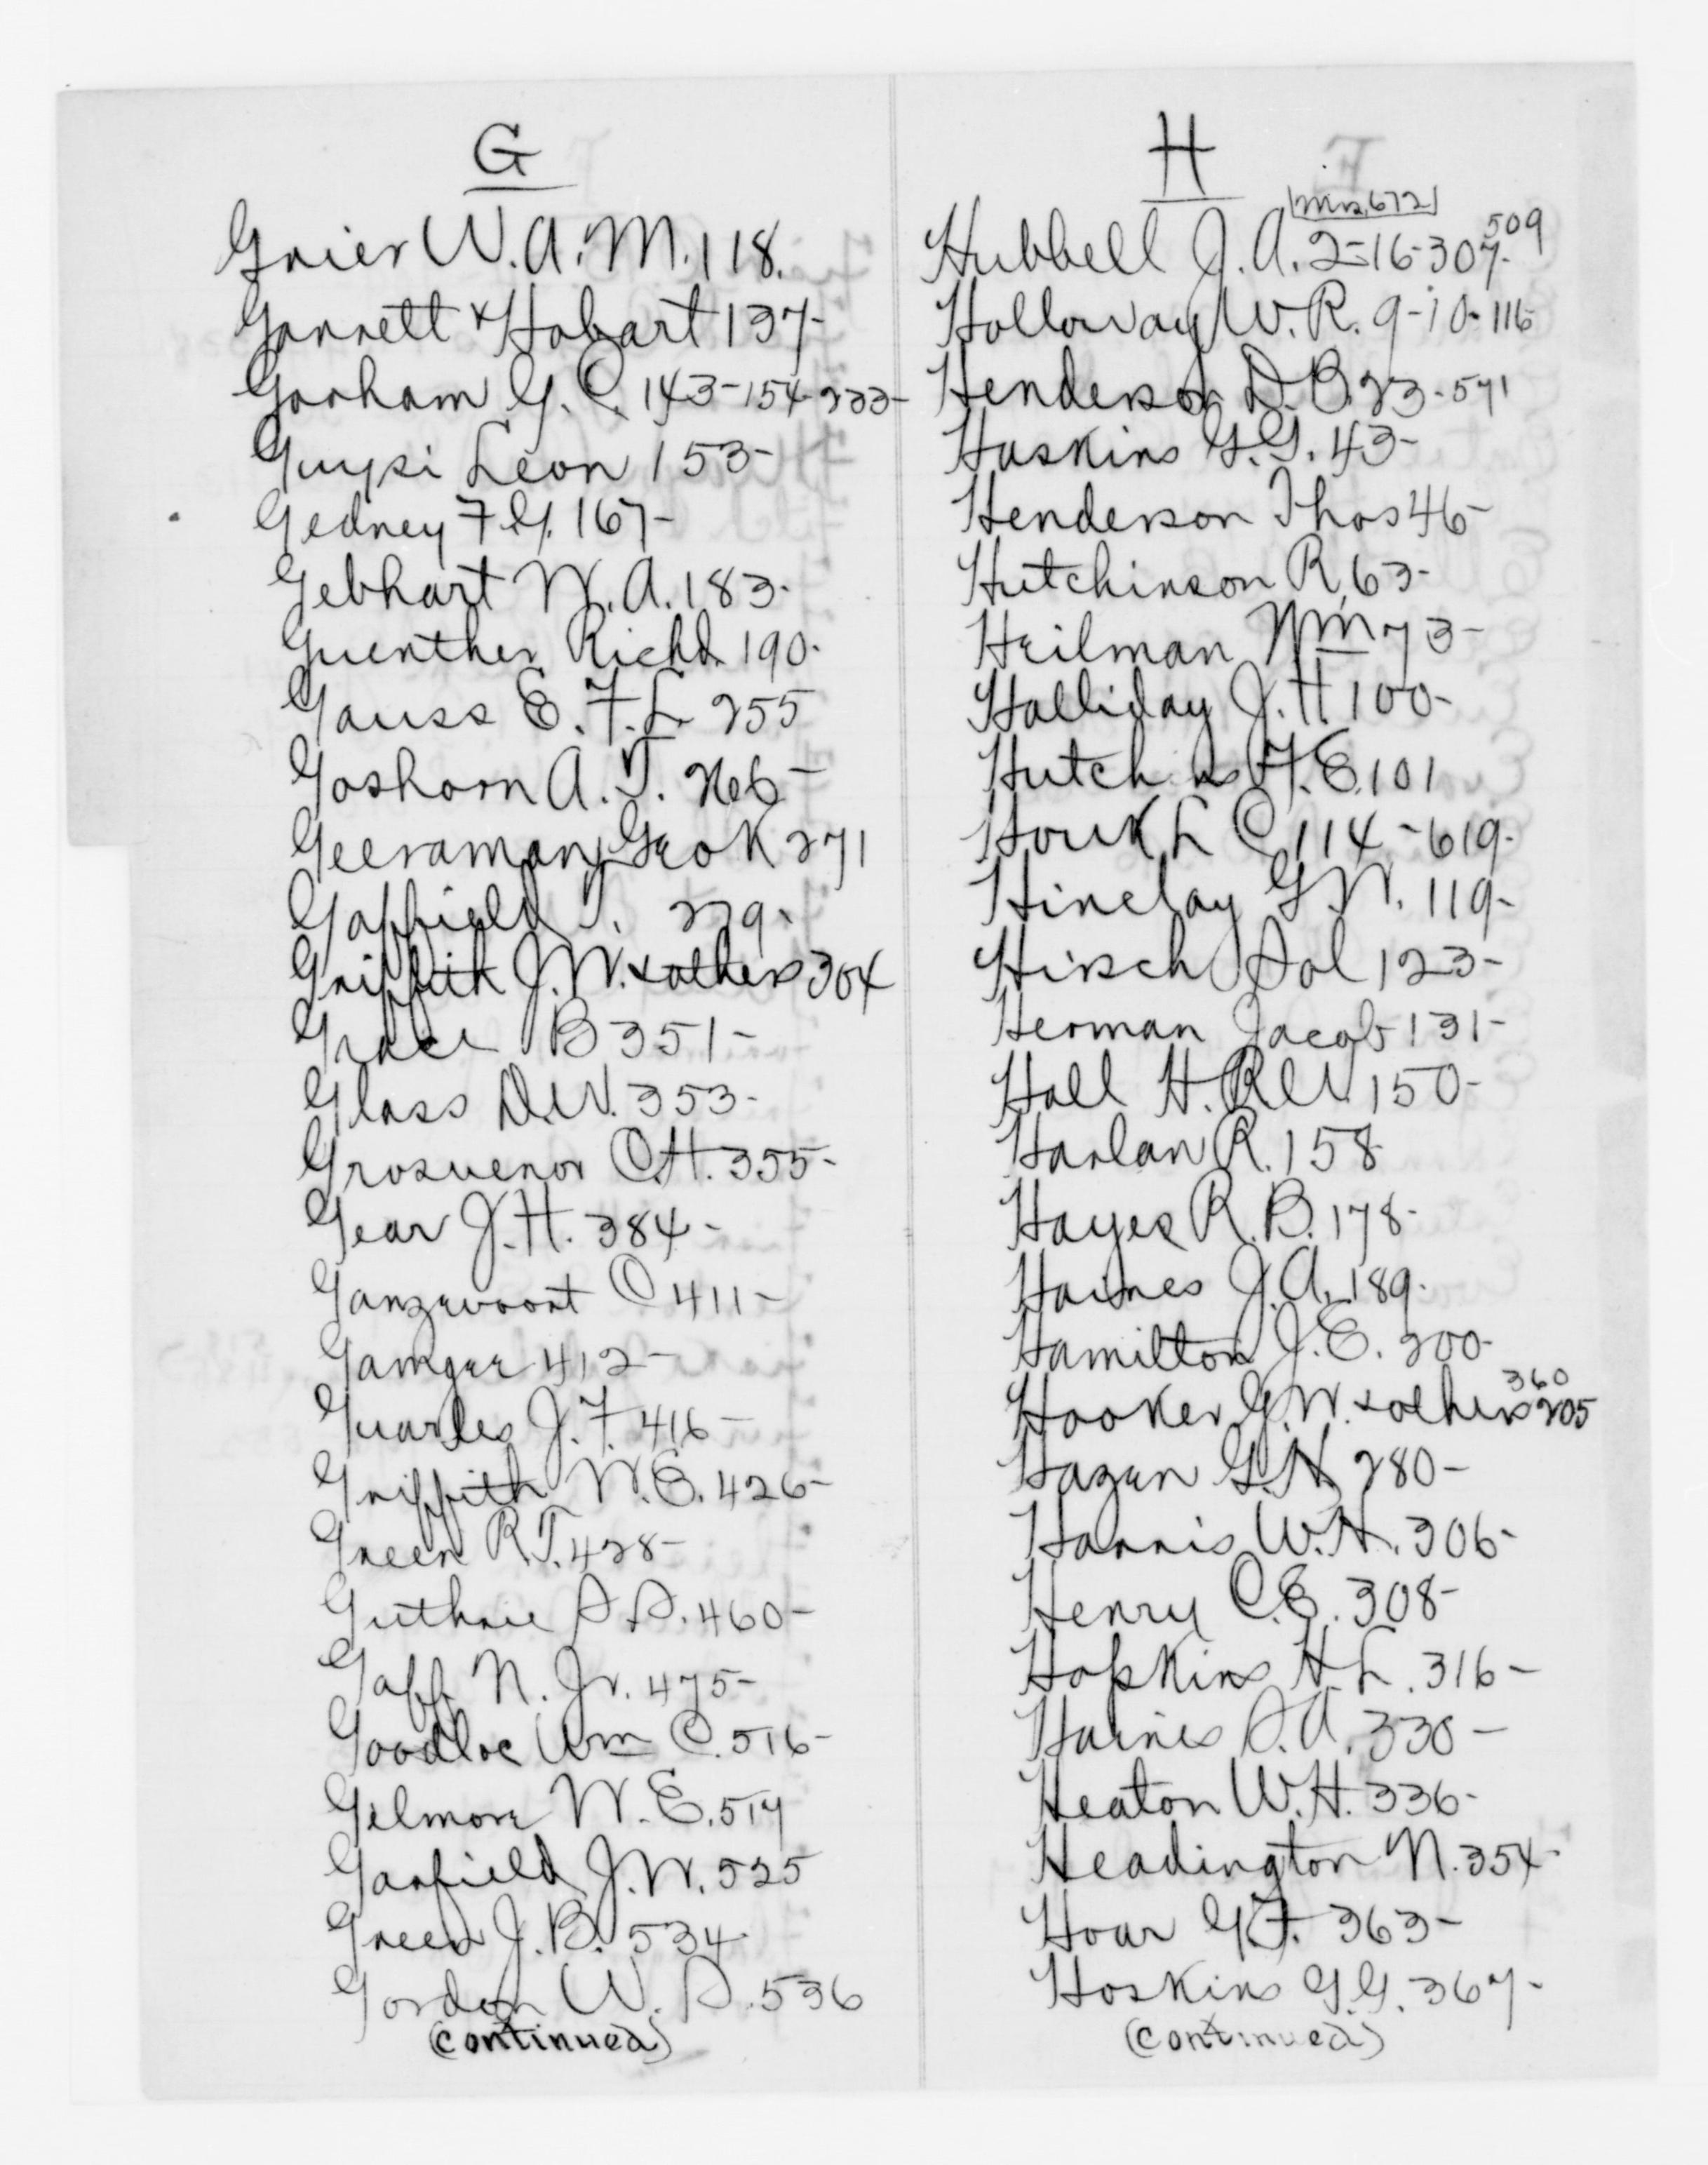 G
Grier W. A. M. 118.
Garrett & Hobart 137-
Gorham G. C. 143-154-233-
Guypi Leon 153-
Gedney F. G. 167-
Gebhart W. A. 183-
Guenther Richd. 190-
Gauss E. F. L. 255
Goshorn A. T.
Geeraman Geo K 271
Gaffield T. 279-
Griffith J. W. & others 304
Grace B 351-
Glass D. W. 353-
Grosvenor C. H. 355-
Gear J. H. 384-
Ganzevoort C 411-
412-
Guarles J. F. 416-
Griffith W. E. 426-
Green R. T. 428-
Guthrie S S. 460-
Gaff N. Jr. 475-
Goodloe Wm C. 516-
Gilmore W. E. 517
Garfield J. W. 525
Green J. B. 534
Gordon W. S. 536
(continued)
H
Mrs. 672
Hubbell J. A. 2-16-307- 509
Holloway W. R. 9-10-116
Henderson D. B. 23-571
Haskins G. G. 43-
Henderson Thos 46-
Hutchinson R. 63-
Heilman Wm 73-
Halliday J. H 100-
Hutchins F. E. 101
Houk L C 114-619-
Hinclay G. W. 119-
Hirsch Sol 123-
Herman Jacob 131-
Hall H. Rev 150-
Harlan R. 158
Hayes R. B. 178-
Haines J. A. 189-
Hamilton J. E. 200-
Hooker G. W. & others 205 360
Hazen G. H 280-
Harris W. H. 306-
Henry C. E. 308-
Hopkins H. L. 316-
Haines S. A. 330-
Heaton W. H. 336-
Headington N. 354-
Hoar G. F. 363-
Hoskins G. G. 367-
(continued)